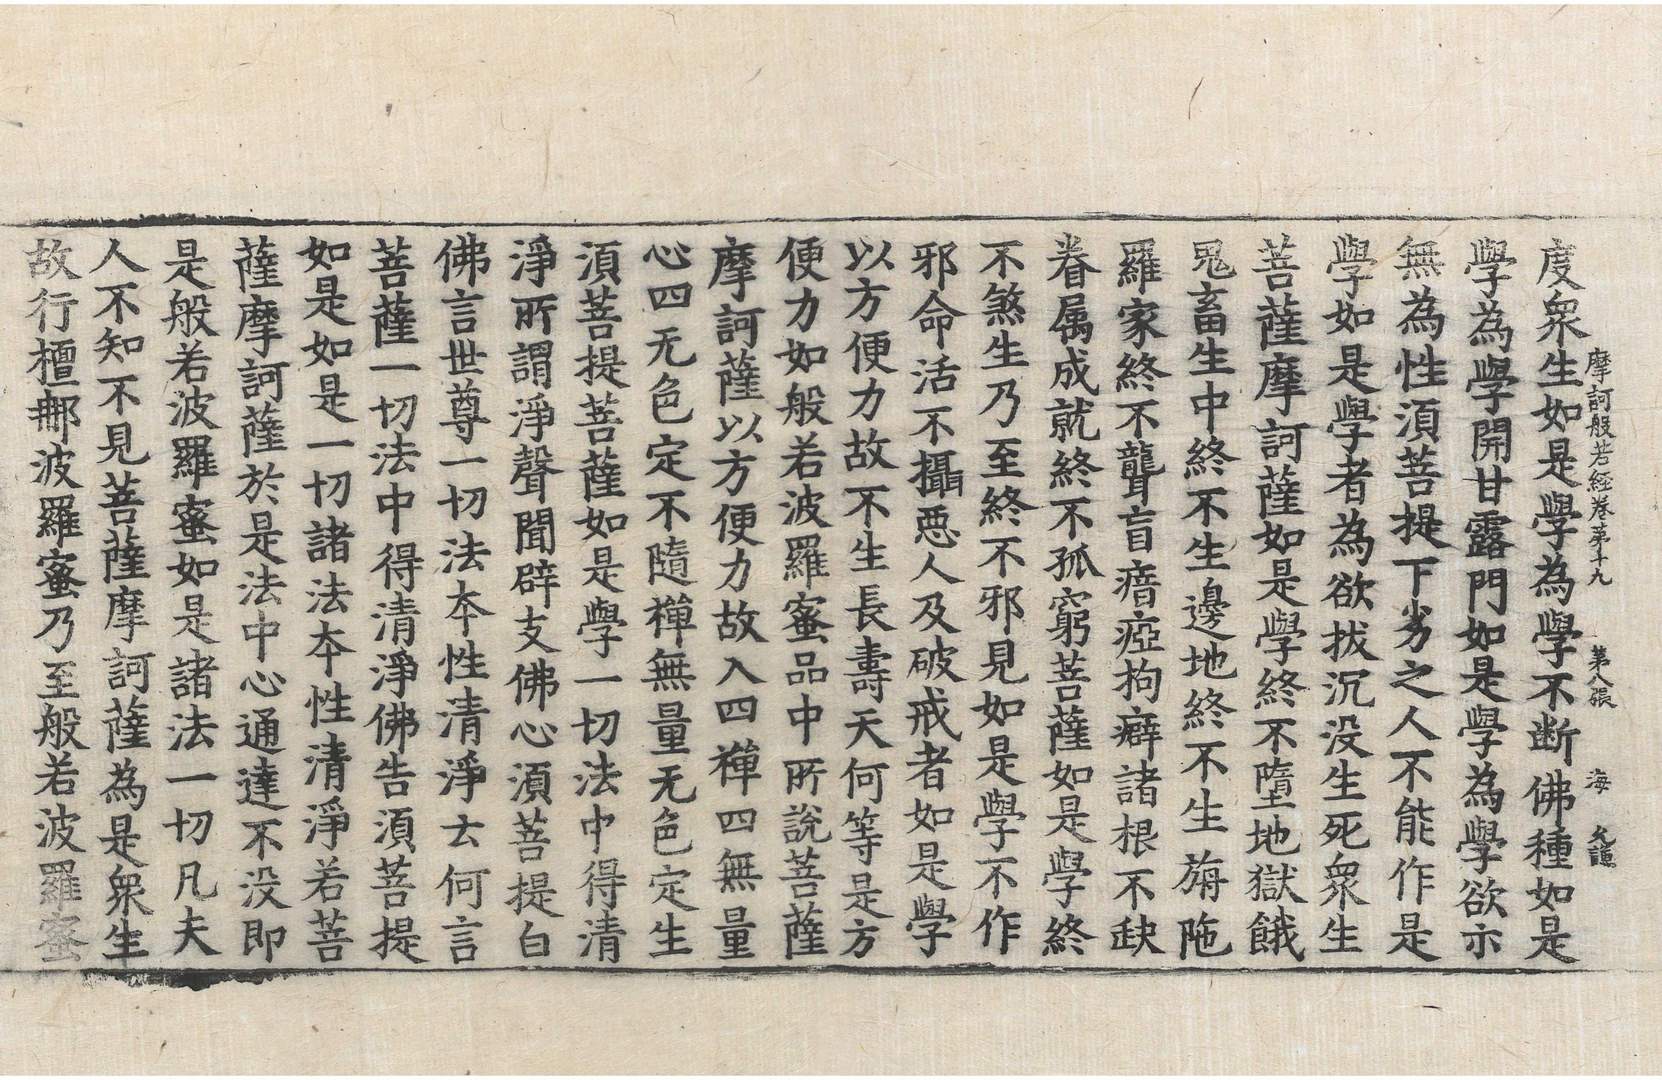 摩訶般若經卷第十九 第八張 海 允謙
度衆生如是學為學不斷佛種如是
學為學開甘露門如是學為學欲示
無為性須菩提下劣之人不能作是
學如是學者為欲拔沉没生死衆生
菩薩摩訶薩如是學終不墮地獄餓
鬼畜生中終不生邊地終不生旃陁
羅家終不聾盲瘖瘂拘癖諸根不缺
眷属成就終不孤窮菩薩如是學終
不煞生乃至終不邪見如是學不作
邪命活不攝惡人及破戒者如是學
以方便力故不生長壽天何等是方
便力如般若波羅蜜品中所說菩薩
摩訶薩以方便力故入四禪四無量
心四无色定不隨禪無量无色定生
須菩提菩薩如是學一切法中得清
淨所謂淨聲聞辟支佛心須菩提白
佛言世尊一切法本性清淨云何言
菩薩一切法中得清淨佛告須菩提
如是如是一切諸法本性清淨若菩
薩摩訶薩於是法中心通達不没即
是般若波羅蜜如是諸法一切凡夫
人不知不見菩薩摩訶薩為是衆生
故行檀那波羅蜜乃至般若波羅蜜